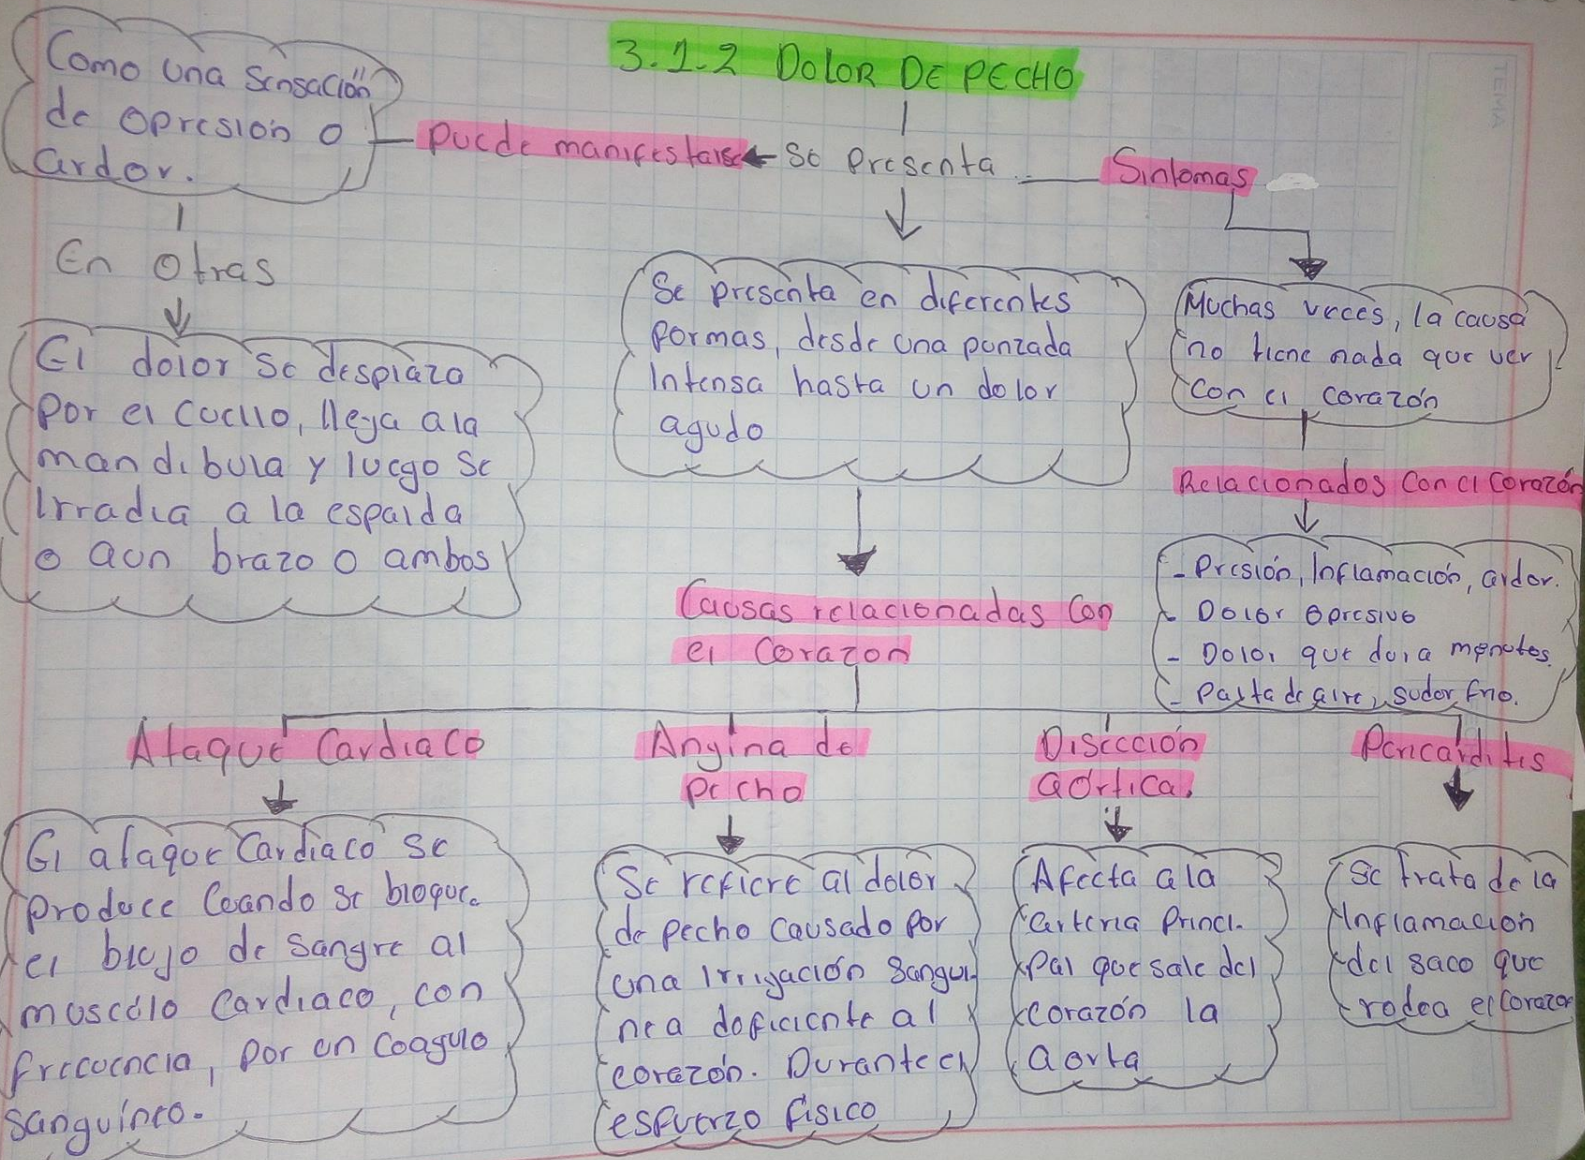 3.1.2 DOLOR DE PECHO
Como una sensación
de opresión o
ardor.
puede manifestarse
se presenta
Sintomas
En otras
El dolor se desplaza
por el cuello, llega a la
mandibula y luego se
Irradia a la espalda
o a un brazo o ambos
Se presenta en diferentes
formas, desde una punzada
Intensa hasta un dolor
agudo
Muchas veces, la causa
no tiene nada que ver
con el corazón
Relacionados con el corazón
- Presión, Inflamación, ardor.
- Dolor opresivo
- Dolor que dura menutes.
- Falta de aire, sudor frio.
Causas relacionadas con
el corazon
Ataque Cardiaco
El ataque cardiaco se
produce cuando se bloque
el blujo de sangre al
muscúlo cardiaco, con
frecuencia, por un coagulo
sanguíneo.
Angina de
pecho
Se refiere al dolor
de pecho causado por
una Irrigación sanguí
nea deficiente al
corazón. Durante el
esfuerzo físico
Disección
aórtica.
Afecta a la
arteria princi-
pal que sale del
corazón la
aorta
Pericarditis
Se trata de la
Inflamación
del saco que
rodea el corazon
TEMA